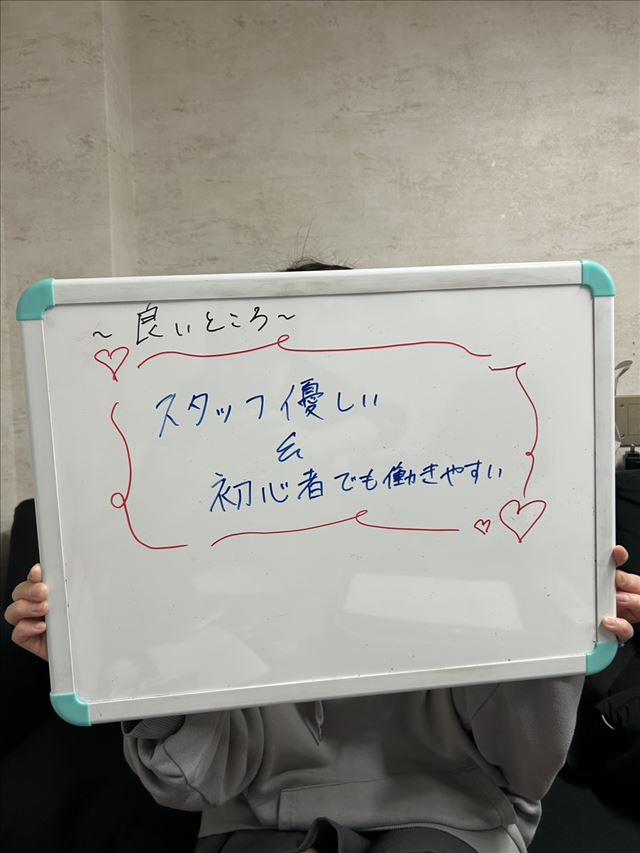 ～良いところ～
スタッフ優しい
&
初心者でも働きやすい